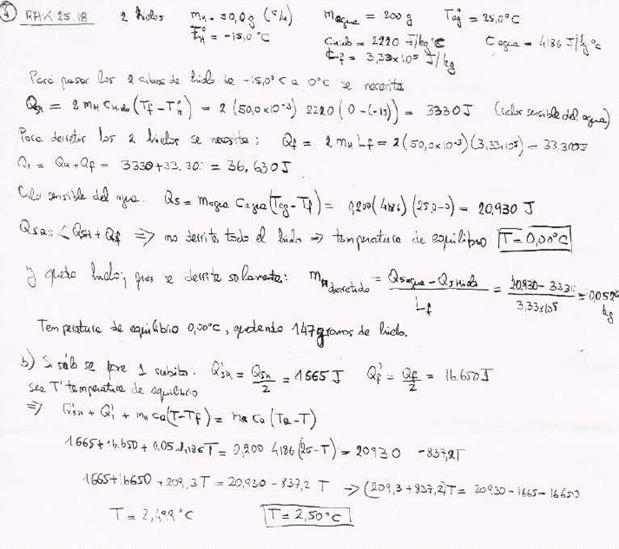 RHK 25.18 2 hielos mH = 50,0 g (c/u) magua = 200 g T°ag = 25,0°C
T°H = -15,0°C chielo = 2220 J/kg°C cagua = 4186 J/kg°C
Lf = 3,33x10⁵ J/kg
Para pasar los 2 cubos de hielo de -15,0°C a 0°C se necesita
QSH = 2 mH CHielo (Tf - T°H) = 2 (50,0x10⁻³) 2220 (0 - (-15)) = 3330 J (calor sensible del agua)
Para derretir los 2 hielos se necesita: Qf = 2 mH Lf = 2(50,0x10⁻³)(3,33x10⁵) = 33.300J
Q1 = QH + Qf = 3330 + 33.30 = 36,630 J
Calor sensible del agua: QS = magua Cagua (Tag - Tf) = 0,200 (4186) (25,0-0) = 20,930 J
QSag < QSH + Qf => no derrite todo el hielo => temperatura de equilibrio T = 0,00°C
y queda hielo; pues se derrite solamente: mH derretido = QSagua - QSHielo / Lf = 20,930 - 3330 / 3,33x10⁵ = 0,052 kg
Temperatura de equilibrio 0,00°C, quedando 147 gramos de hielo.
b) Si sólo se pone 1 cubito: Q'SH = QSH / 2 = 1665 J Q'f = Qf / 2 = 16.650 J
sea T' temperatura de equilibrio
=> Q'SH + Q'f + mH ca (T - Tf) = ma ca (Ta - T)
1665 + 16.650 + 0,05.4186 T = 0,200 4186 (25 - T) = 20930 - 837,2T
1665 + 16650 + 209,3 T = 20,930 - 837,2 T -> (209,3 + 837,2)T = 20930 - 1665 - 16650
T = 2,499°C T = 2,50°C